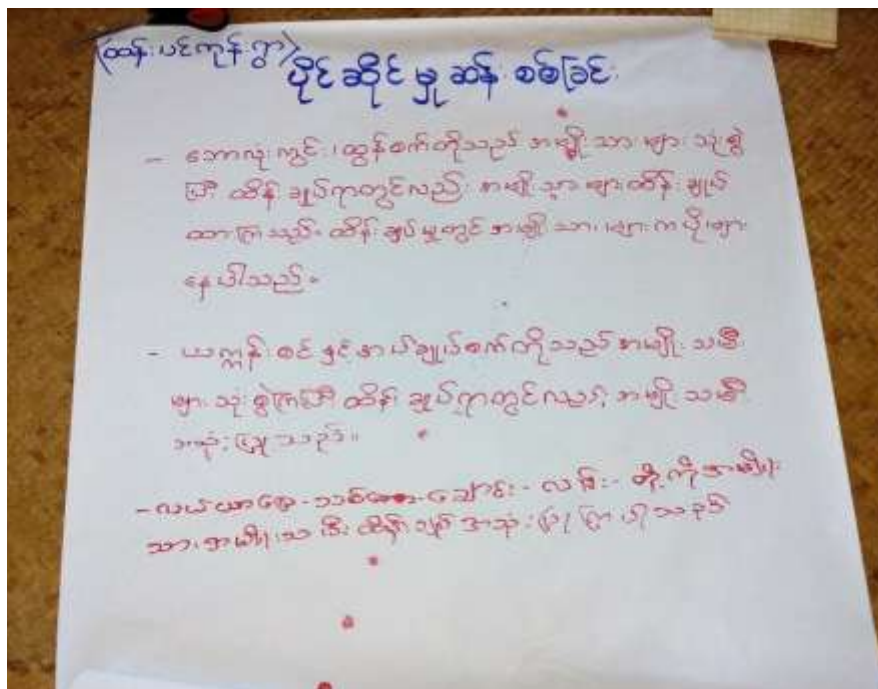 (ထန်းပင်ကုန်းရွာ)
ပိုင်ဆိုင်မှုဆန်းစစ်ခြင်း
- ဘောလုံးကွင်း၊ ထွန်စက်တို့သည် အမျိုးသားများ သုံးစွဲ
ပြီး ထိန်းချုပ်ရာတွင်လည်း အမျိုးသားများထိန်းချုပ်
ထားကြသည်။ ထိန်းချုပ်မှုတွင် အမျိုးသားများက ပိုများ
နေပါသည်။
- ယက္ကန်းစင်နှင့်အပ်ချုပ်စက်တို့သည် အမျိုးသမီး
များသုံးစွဲကြပြီး ထိန်းချုပ်ရာတွင်လည်း အမျိုးသမီး
အသုံးပြုသည်။
- လယ်ယာမြေ - သစ် - ချောင်း - လမ်း - တို့ကိုအမျိုး
သား၊ အမျိုးသမီး ထိန်းချုပ် အသုံးပြုကြပါသည်